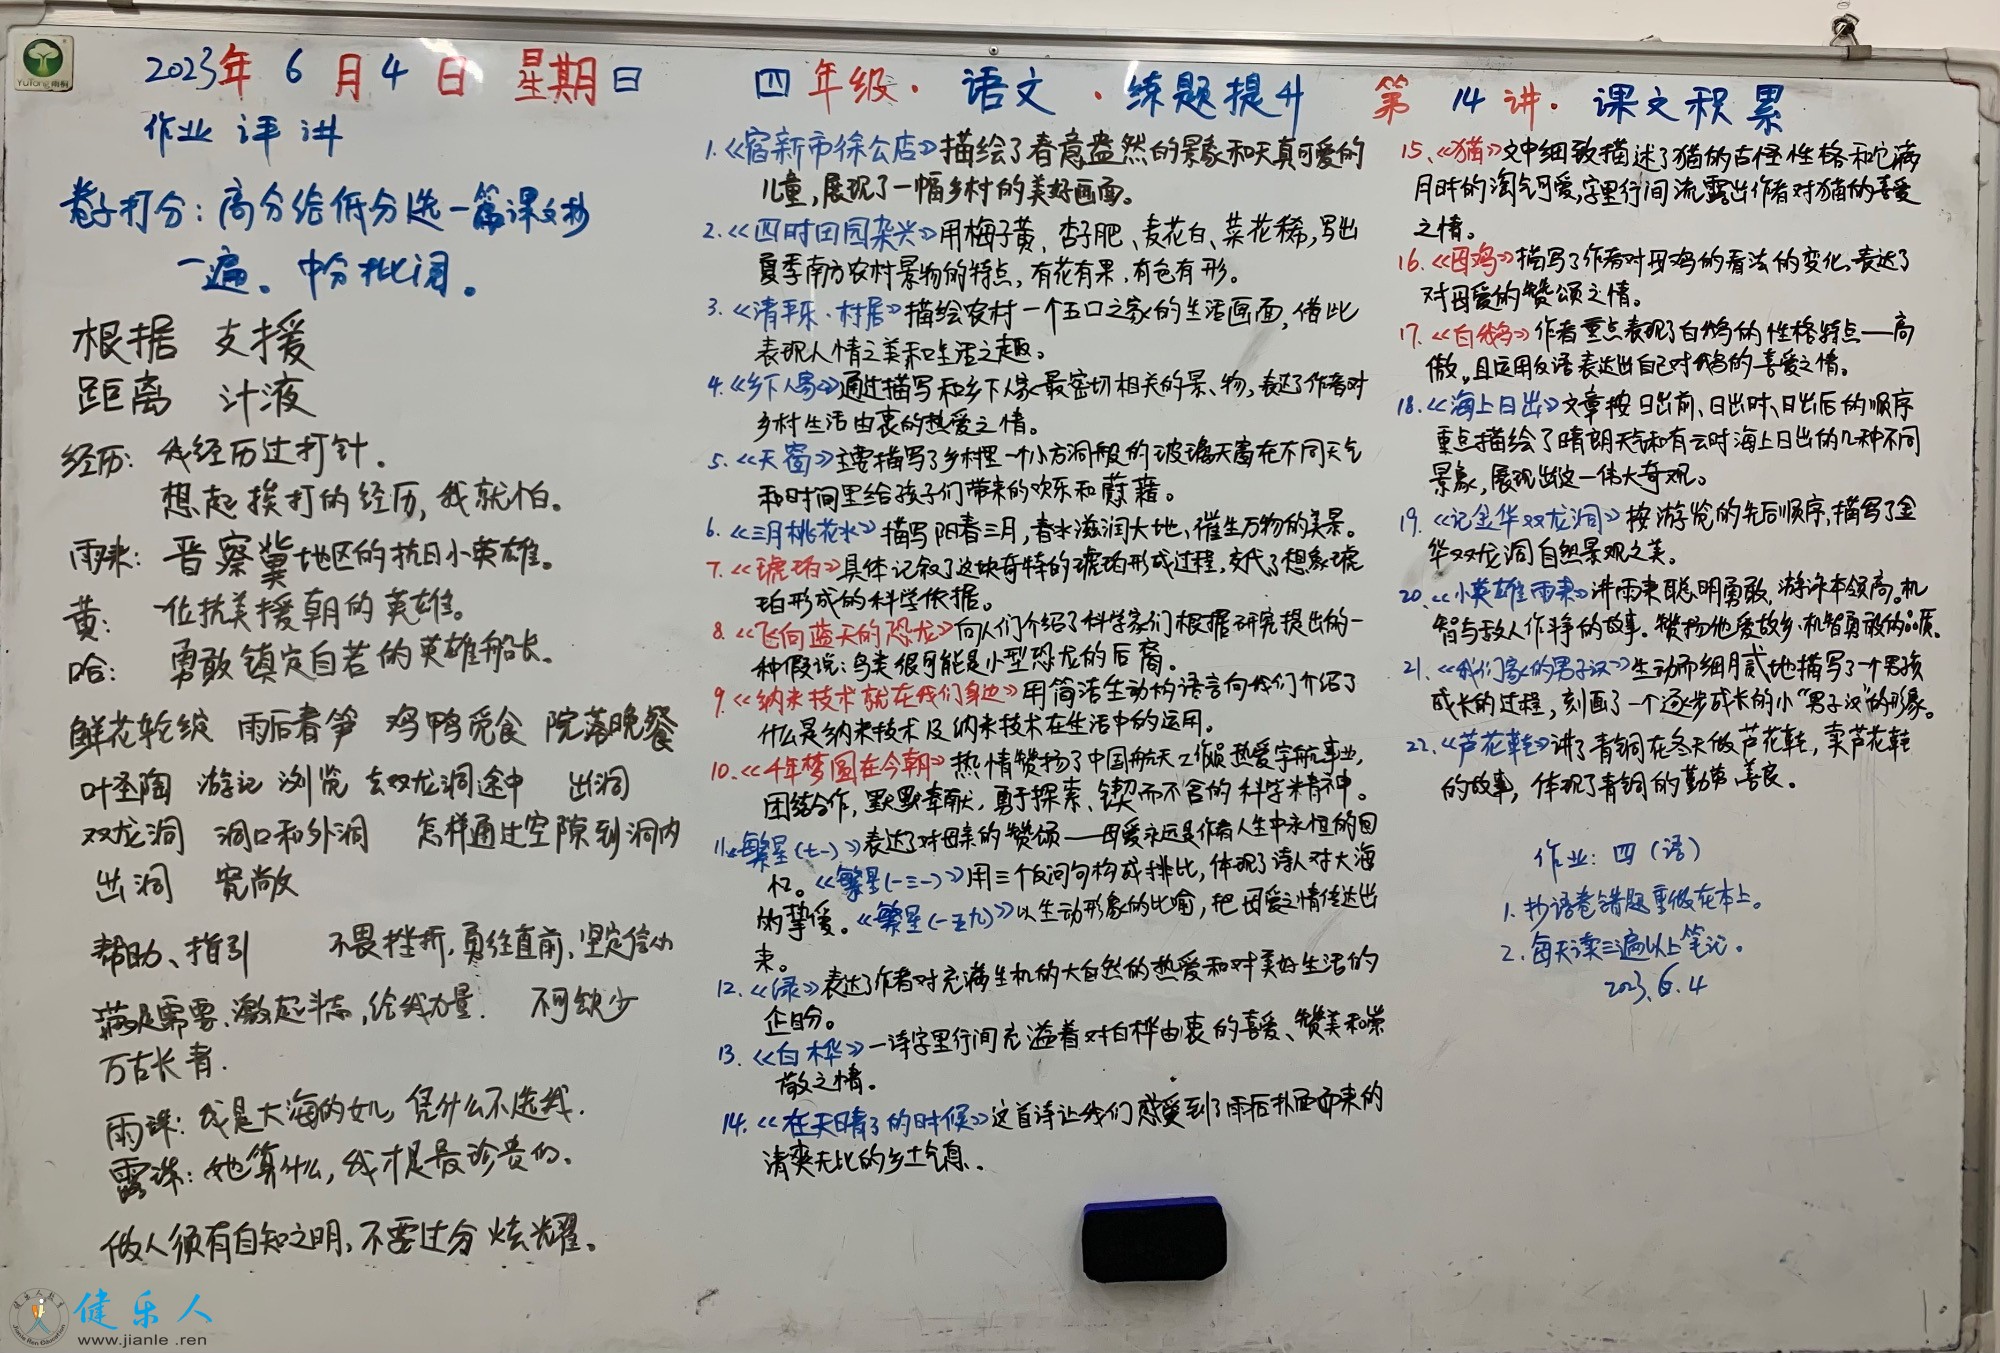 YuTong雨桐
2023年6月4日 星期日
四年级·语文·练题提升 第14讲·课文积累
作业评讲
卷子打分:高分给低分选一篇课文抄
一遍。中分批词。
根据 支援
距离 汁液
经历:我经历过打针.
想起挨打的经历,我就怕。
雨来:晋察冀地区的抗日小英雄。
黄:一位抗美援朝的英雄。
哈:勇敢镇定自若的英雄船长.
鲜花轮绽 雨后春笋 鸡鸭觅食 院落晚餐
叶圣陶 游记 浏览 去双龙洞途中 出洞
双龙洞 洞口和外洞 怎样通过空隙到洞内
出洞 宽敞
帮助、指引 不畏挫折,勇往直前,坚定信心
满足需要、激起斗志,给我力量. 不可缺少
万古长青.
雨珠:我是大海的女儿,凭什么不选我.
露珠:她算什么,我才是最珍贵的.
做人须有自知之明,不要过分炫耀。
1.《宿新市徐公店》描绘了春意盎然的景象和天真可爱的
儿童,展现了一幅乡村的美好画面。
2.《四时田园杂兴》用梅子黄、杏子肥、麦花白、菜花稀,写出
夏季南方农村景物的特点,有花有果,有色有形。
3.《清平乐·村居》描绘农村一个五口之家的生活画面,借此
表现人情之美和生活之趣。
4.《乡下人家》通过描写和乡下人家最密切相关的景、物,表达了作者对
乡村生活由衷的热爱之情。
5.《天窗》主要描写了乡村里一个小方洞般的玻璃天窗在不同天气
和时间里给孩子们带来的欢乐和慰藉。
6.《三月桃花水》描写阳春三月,春水滋润大地、催生万物的美景。
7.《琥珀》具体记叙了这块奇特的琥珀形成过程,交代了想象琥
珀形成的科学依据。
8.《飞向蓝天的恐龙》向人们介绍了科学家们根据研究提出的一
种假说:鸟类很可能是小型恐龙的后裔。
9.《纳米技术就在我们身边》用简洁生动的语言向我们介绍了
什么是纳米技术及纳米技术在生活中的运用。
10.《千年梦圆在今朝》热情赞扬了中国航天工作员热爱宇航事业,
团结合作,默默奉献,勇于探索、锲而不舍的科学精神。
11.《繁星(七一)》表达了对母亲的赞颂——母爱永远是作者人生中永恒的回
忆。《繁星(一三一)》用三个反问句构成排比,体现了诗人对大海
的挚爱。《繁星(一五九)》以生动形象的比喻,把母爱之情传达出
来。
12.《绿》表达了作者对充满生机的大自然的热爱和对美好生活的
企盼。
13.《白桦》一诗字里行间充溢着对白桦由衷的喜爱、赞美和崇
敬之情。
14.《在天晴了的时候》这首诗让我们感受到了雨后扑面而来的
清爽无比的乡土气息.
15.《猫》文中细致描述了猫的古怪性格和它满
月时的淘气可爱,字里行间流露出作者对猫的喜爱
之情。
16.《母鸡》描写了作者对母鸡的看法的变化,表达了
对母爱的赞颂之情。
17.《白鹅》作者重点表现了白鹅的性格特点——高
傲,且运用反语表达出自己对鹅的喜爱之情。
18.《海上日出》文章按日出前、日出时、日出后的顺序
重点描绘了晴朗天气和有云时海上日出的几种不同
景象,展现出这一伟大奇观。
19.《记金华双龙洞》按游览的先后顺序,描写了金
华双龙洞自然景观之美。
20.《小英雄雨来》讲雨来聪明勇敢,游泳本领高,机
智与敌人作斗争的故事。赞扬他爱故乡、机智勇敢的品质。
21.《我们家的男子汉》生动而细腻地描写了一个男孩
成长的过程,刻画了一个逐步成长的小“男子汉”的形象。
22.《芦花鞋》讲了青铜在冬天做芦花鞋,卖芦花鞋
的故事,体现了青铜的勤劳、善良。
作业:四(语)
1.抄语卷错题重做在本上。
2.每天读三遍以上笔记。
2023.6.4
健乐人
www.jianle.ren